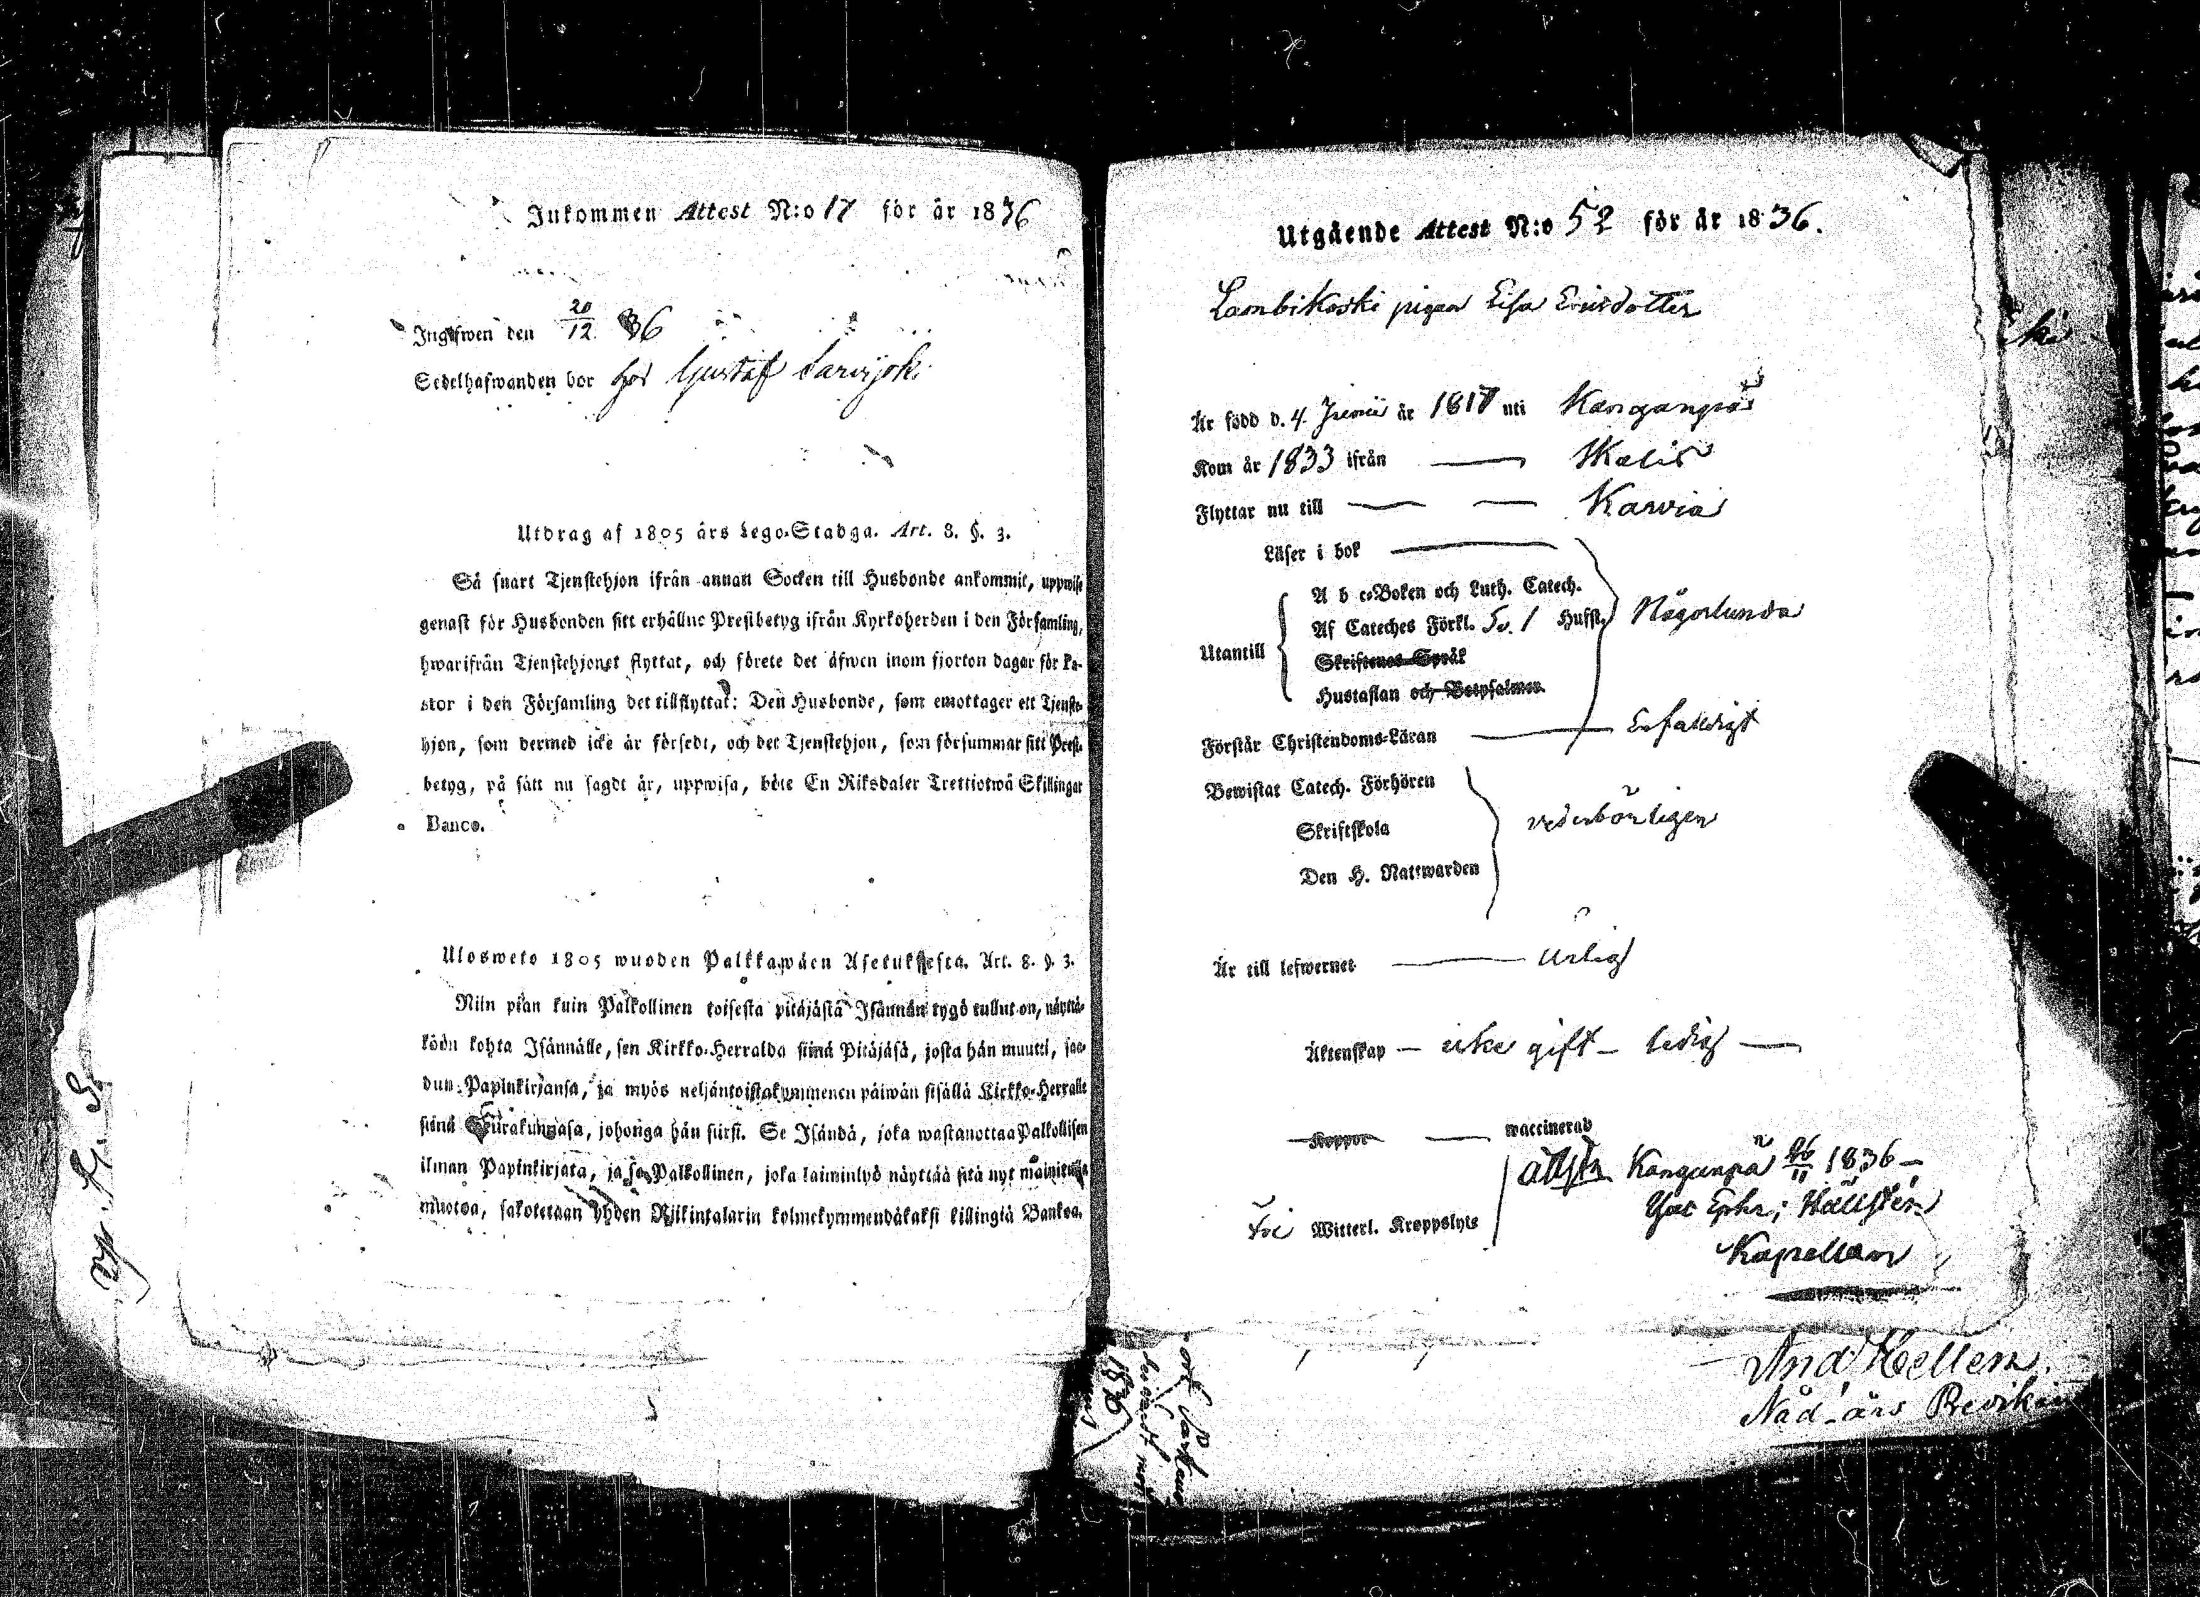 Inkommen Attest N:o 17 för år 1836
Ingifwen den 20/12 36
Sedelhafwanden bor hos Gustaf Sarvijoki
Utdrag af 1805 års Lego-Stadga. Art. 8. §. 3.
Så snart Tjenstehjon ifrån annan Socken till Husbonde ankommit, uppwise
genast för Husbonden sitt erhållne Prestbetyg ifrån Kyrkoherden i den Församling,
hwarifrån Tjenstehjonet flyttat, och förete det äfwen inom fjorton dagar för Pa-
stor i den Församling det tillflyttat: Den Husbonde, som emottager ett Tjenste-
hjon, som dermed icke är försedt, och det Tjenstehjon, som försummar sitt Prest-
betyg, på sätt nu sagdt är, uppwisa, böte En Riksdaler Trettiotwå Skillingar
Banco.
Ulosweto 1805 wuoden Palkkawäen Asetuksesta. Art. 8. §. 3.
Niin pian kuin Palkollinen toisesta pitäjästä Isännän tygö tullut on, näyttä-
köön kohta Isännälle, sen Kirkko-Herralda siinä Pitäjäsä, josta hän muutti, saa-
dun Papinkirjansa, ja myös neljäntoistakymmenen päiwän sisällä Kirkko-Herralle
siinä Seurakunnasa, johonga hän siirsi. Se Isändä, joka wastanottaa Palkollisen
ilman Papinkirjata, ja se Palkollinen, joka laiminlyö näyttää sitä nyt mainitulla
muotoa, sakotetaan yhden Riikintalarin kolmekymmendäkaksi killingiä Bankoa.
Utgående Attest N:o 52 för år 1836.
Lambikoski pigan Lisa Ersdotter
Är född d. 4 Junii år 1817 uti Kanganpää
Kom år 1833 ifrån
Flyttar nu till Karvia
Läser i bok
Utantill
A b c-Boken och Luth. Catech.
Af Cateches Förkl. Sv. 1 Hufst. Någorlunda
Skriftenes Språk
Hustaflan och Botpsalmer.
Förstår Christendoms-Läran Enfaldigt
Bewistat Catech. Förhören
Skriftskola vederbörligen
Den H. Nattwarden
Är till lefwernet ärlig
Äktenskap icke gift ledig
Koppor waccinerad
Fri Witterl. Kroppslyte
attest. Kangunpä 26/11 1836
Hällsten
Kapellan
And Hellen
Nåd-års
1836